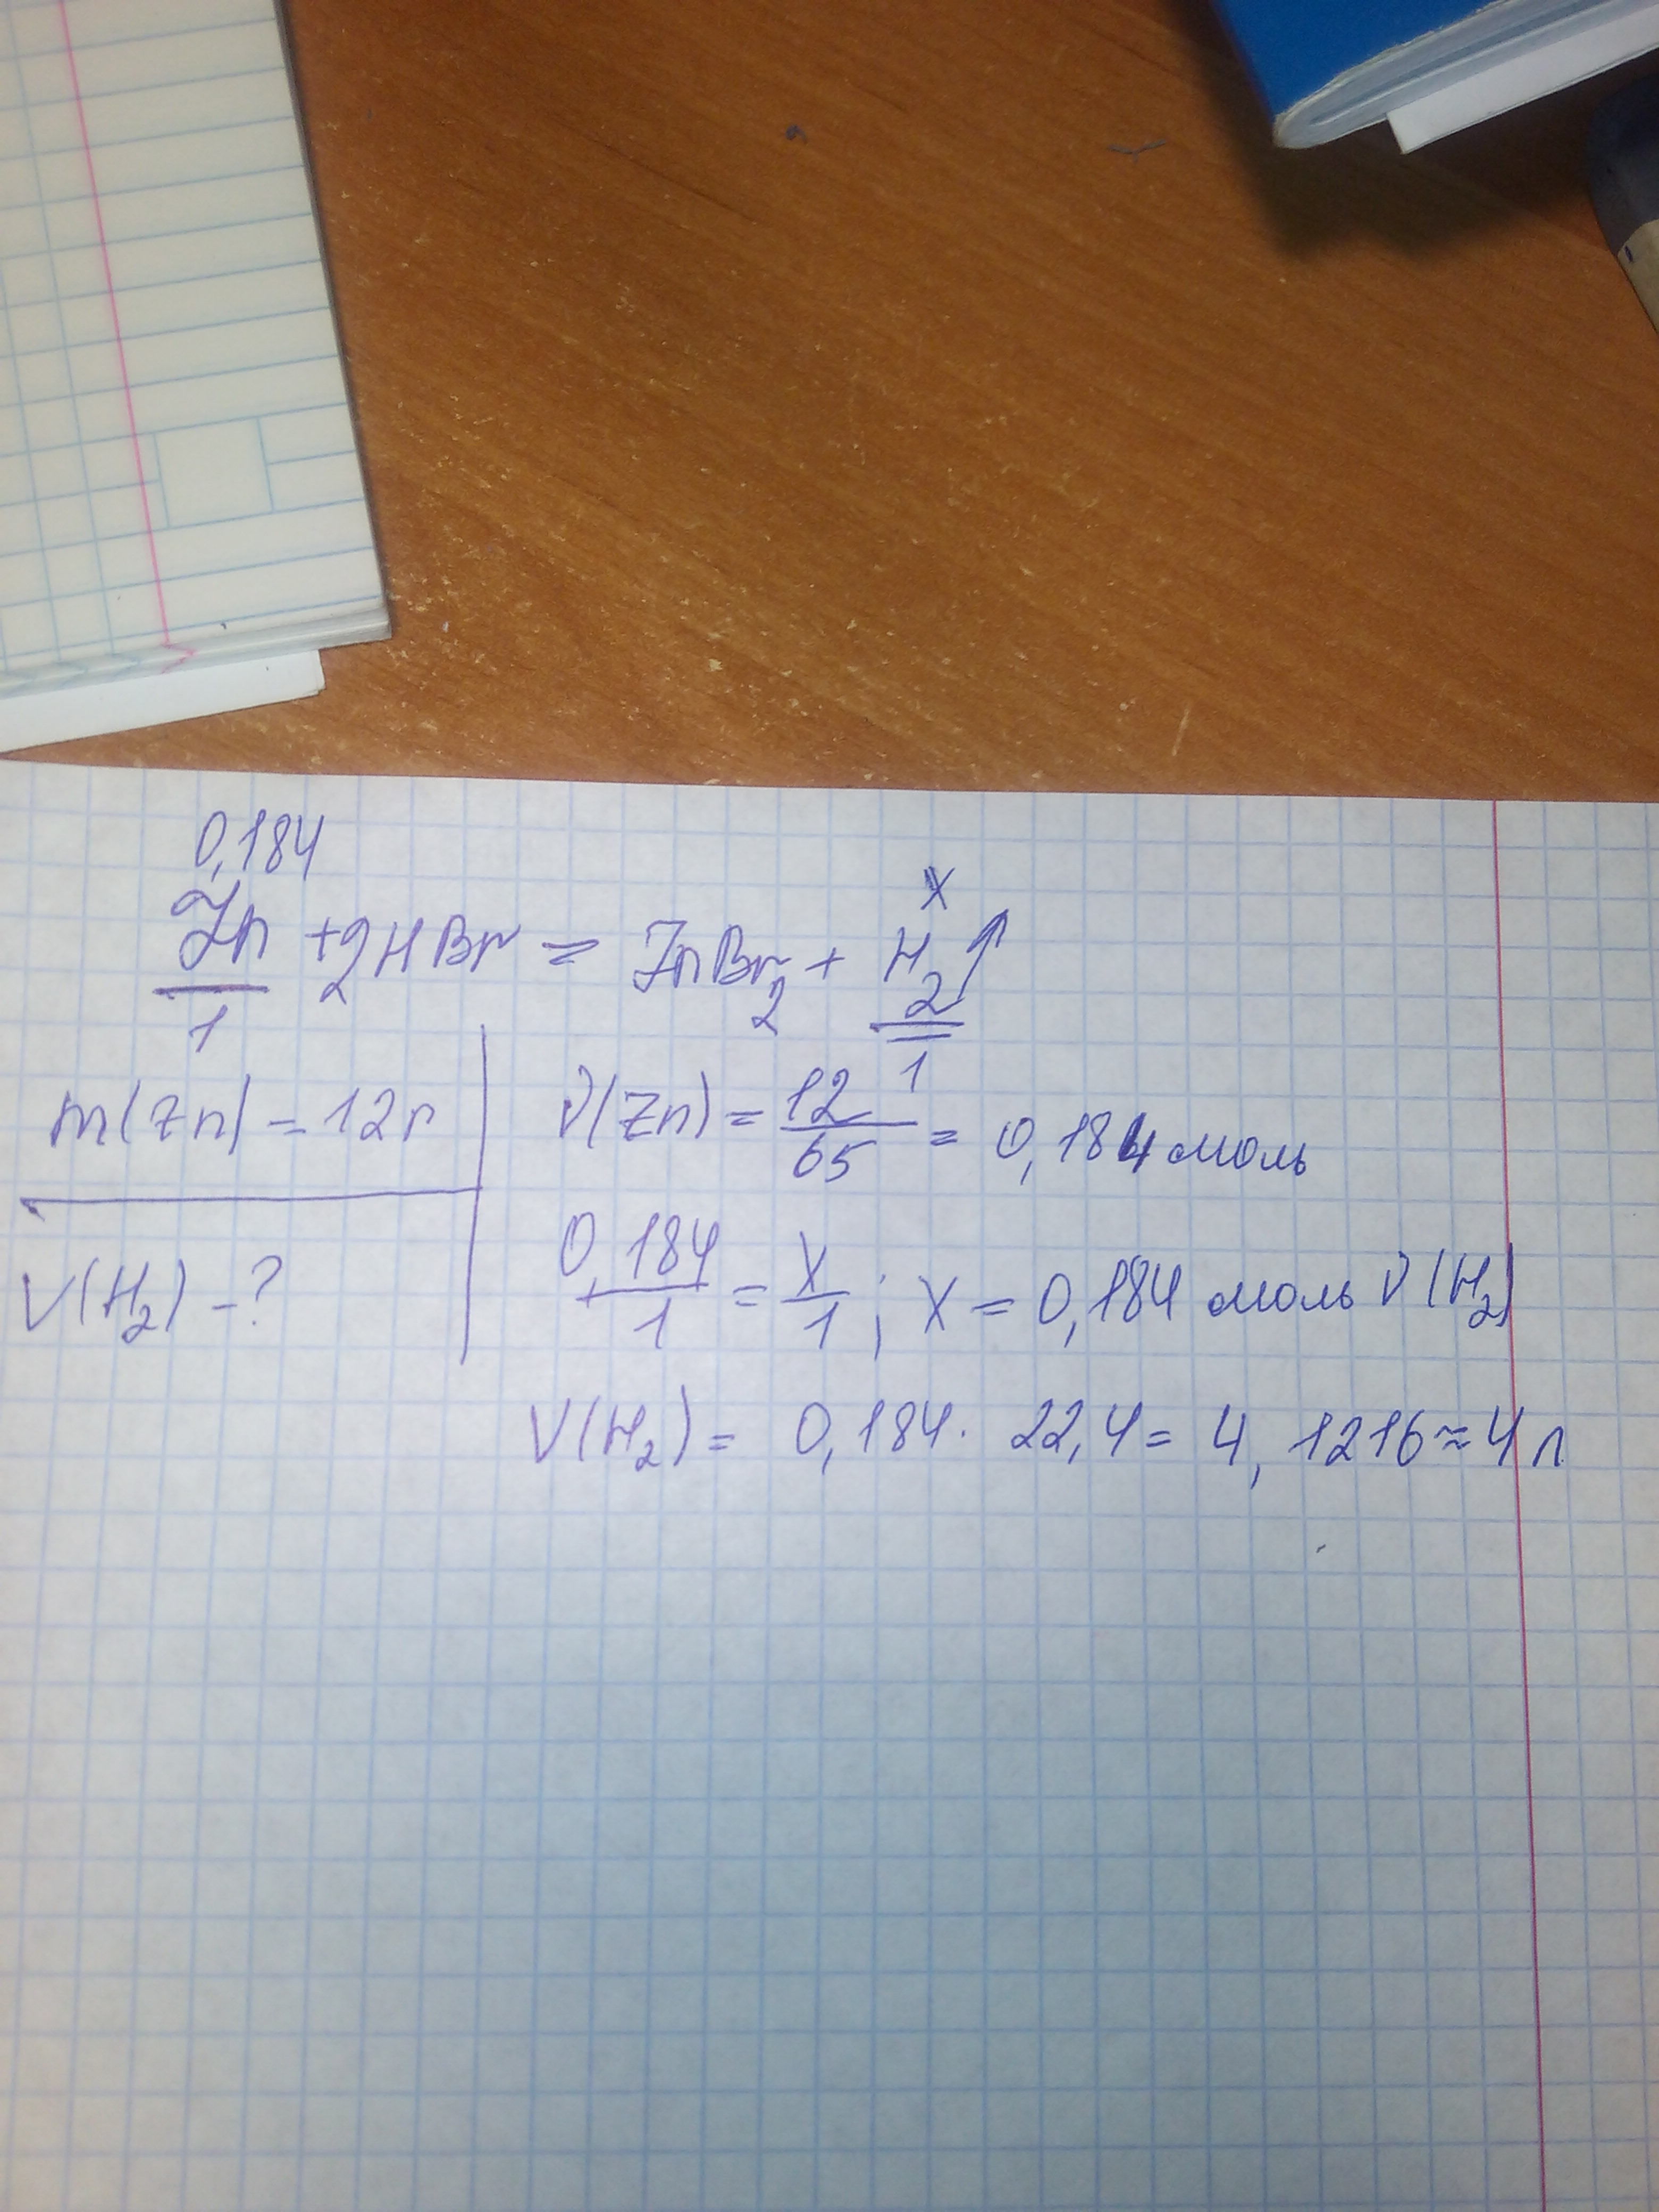 0,184 x
Zn + 2HBr = ZnBr2 + H2↑
1 1
m(Zn) = 12г
ν(Zn) = 12/65 = 0,184 моль
V(H2) - ?
0,184/1 = x/1 ; x = 0,184 моль ν(H2)
V(H2) = 0,184 · 22,4 = 4,1216 ≈ 4 л